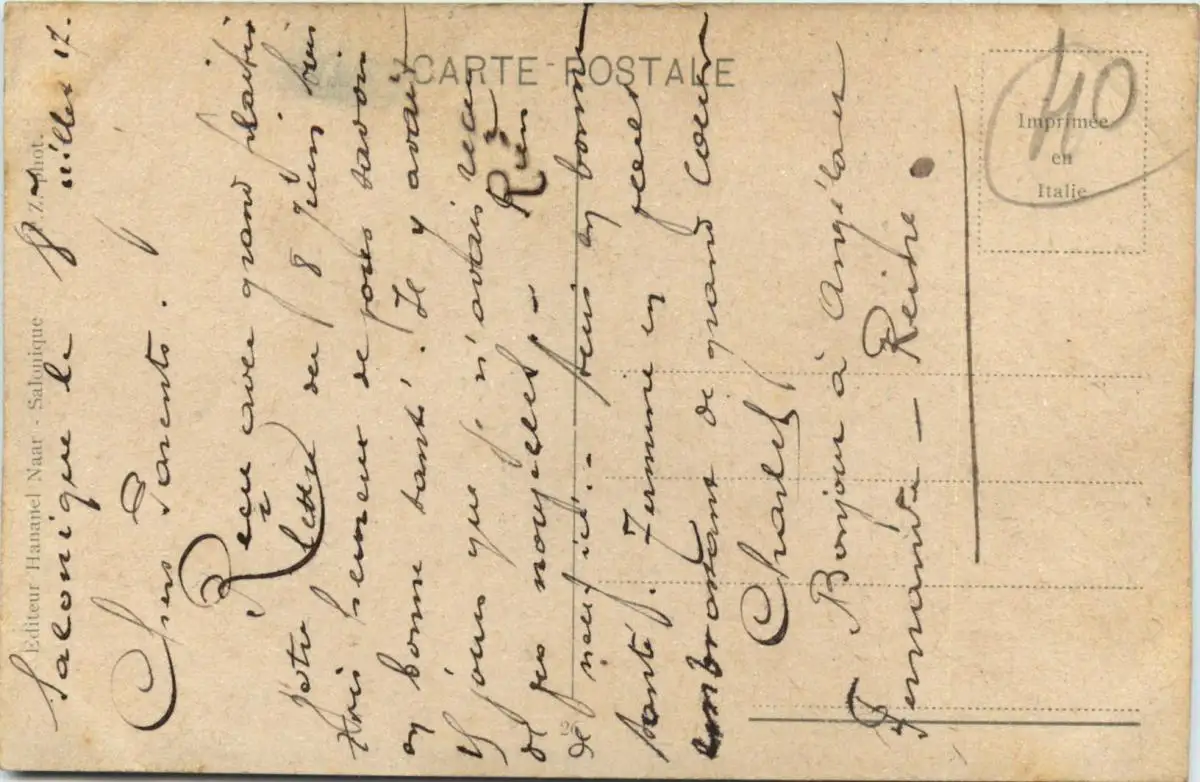 CARTE POSTALE
Imprimée
en
Italie
40
Editeur Hananel Naar - Salonique
phot.
26
Salonique le 8 juillet 17.
Chers Parents.
Reçu avec grand plaisir
votre lettre du 8 Juin
suis heureux de vous savoir
en bonne santé. Il y avait
jours que je n'avais reçu
de vos nouvelles - Rien
de neuf ici. - suis en bonne
santé. Termine en vous
embrassant de grand coeur
Charles
Bonjour à Angélane
Fernande - Reine.